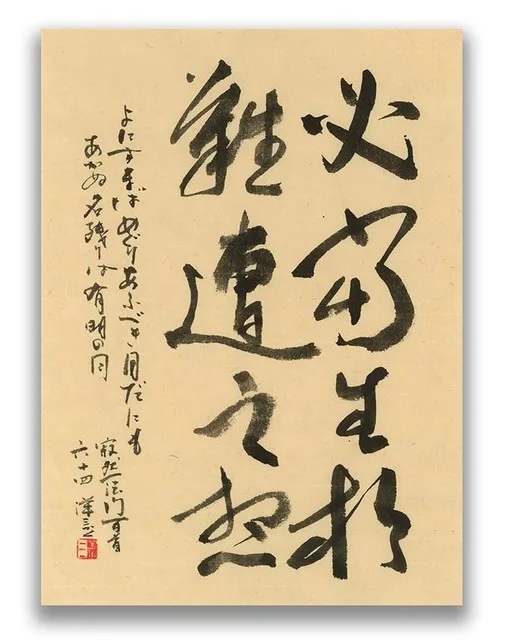 必當生於
難遭之想
よにすまばめぐりあふべき月だにも
あかぬ名残りは有明の
寂然法門百首
六十四